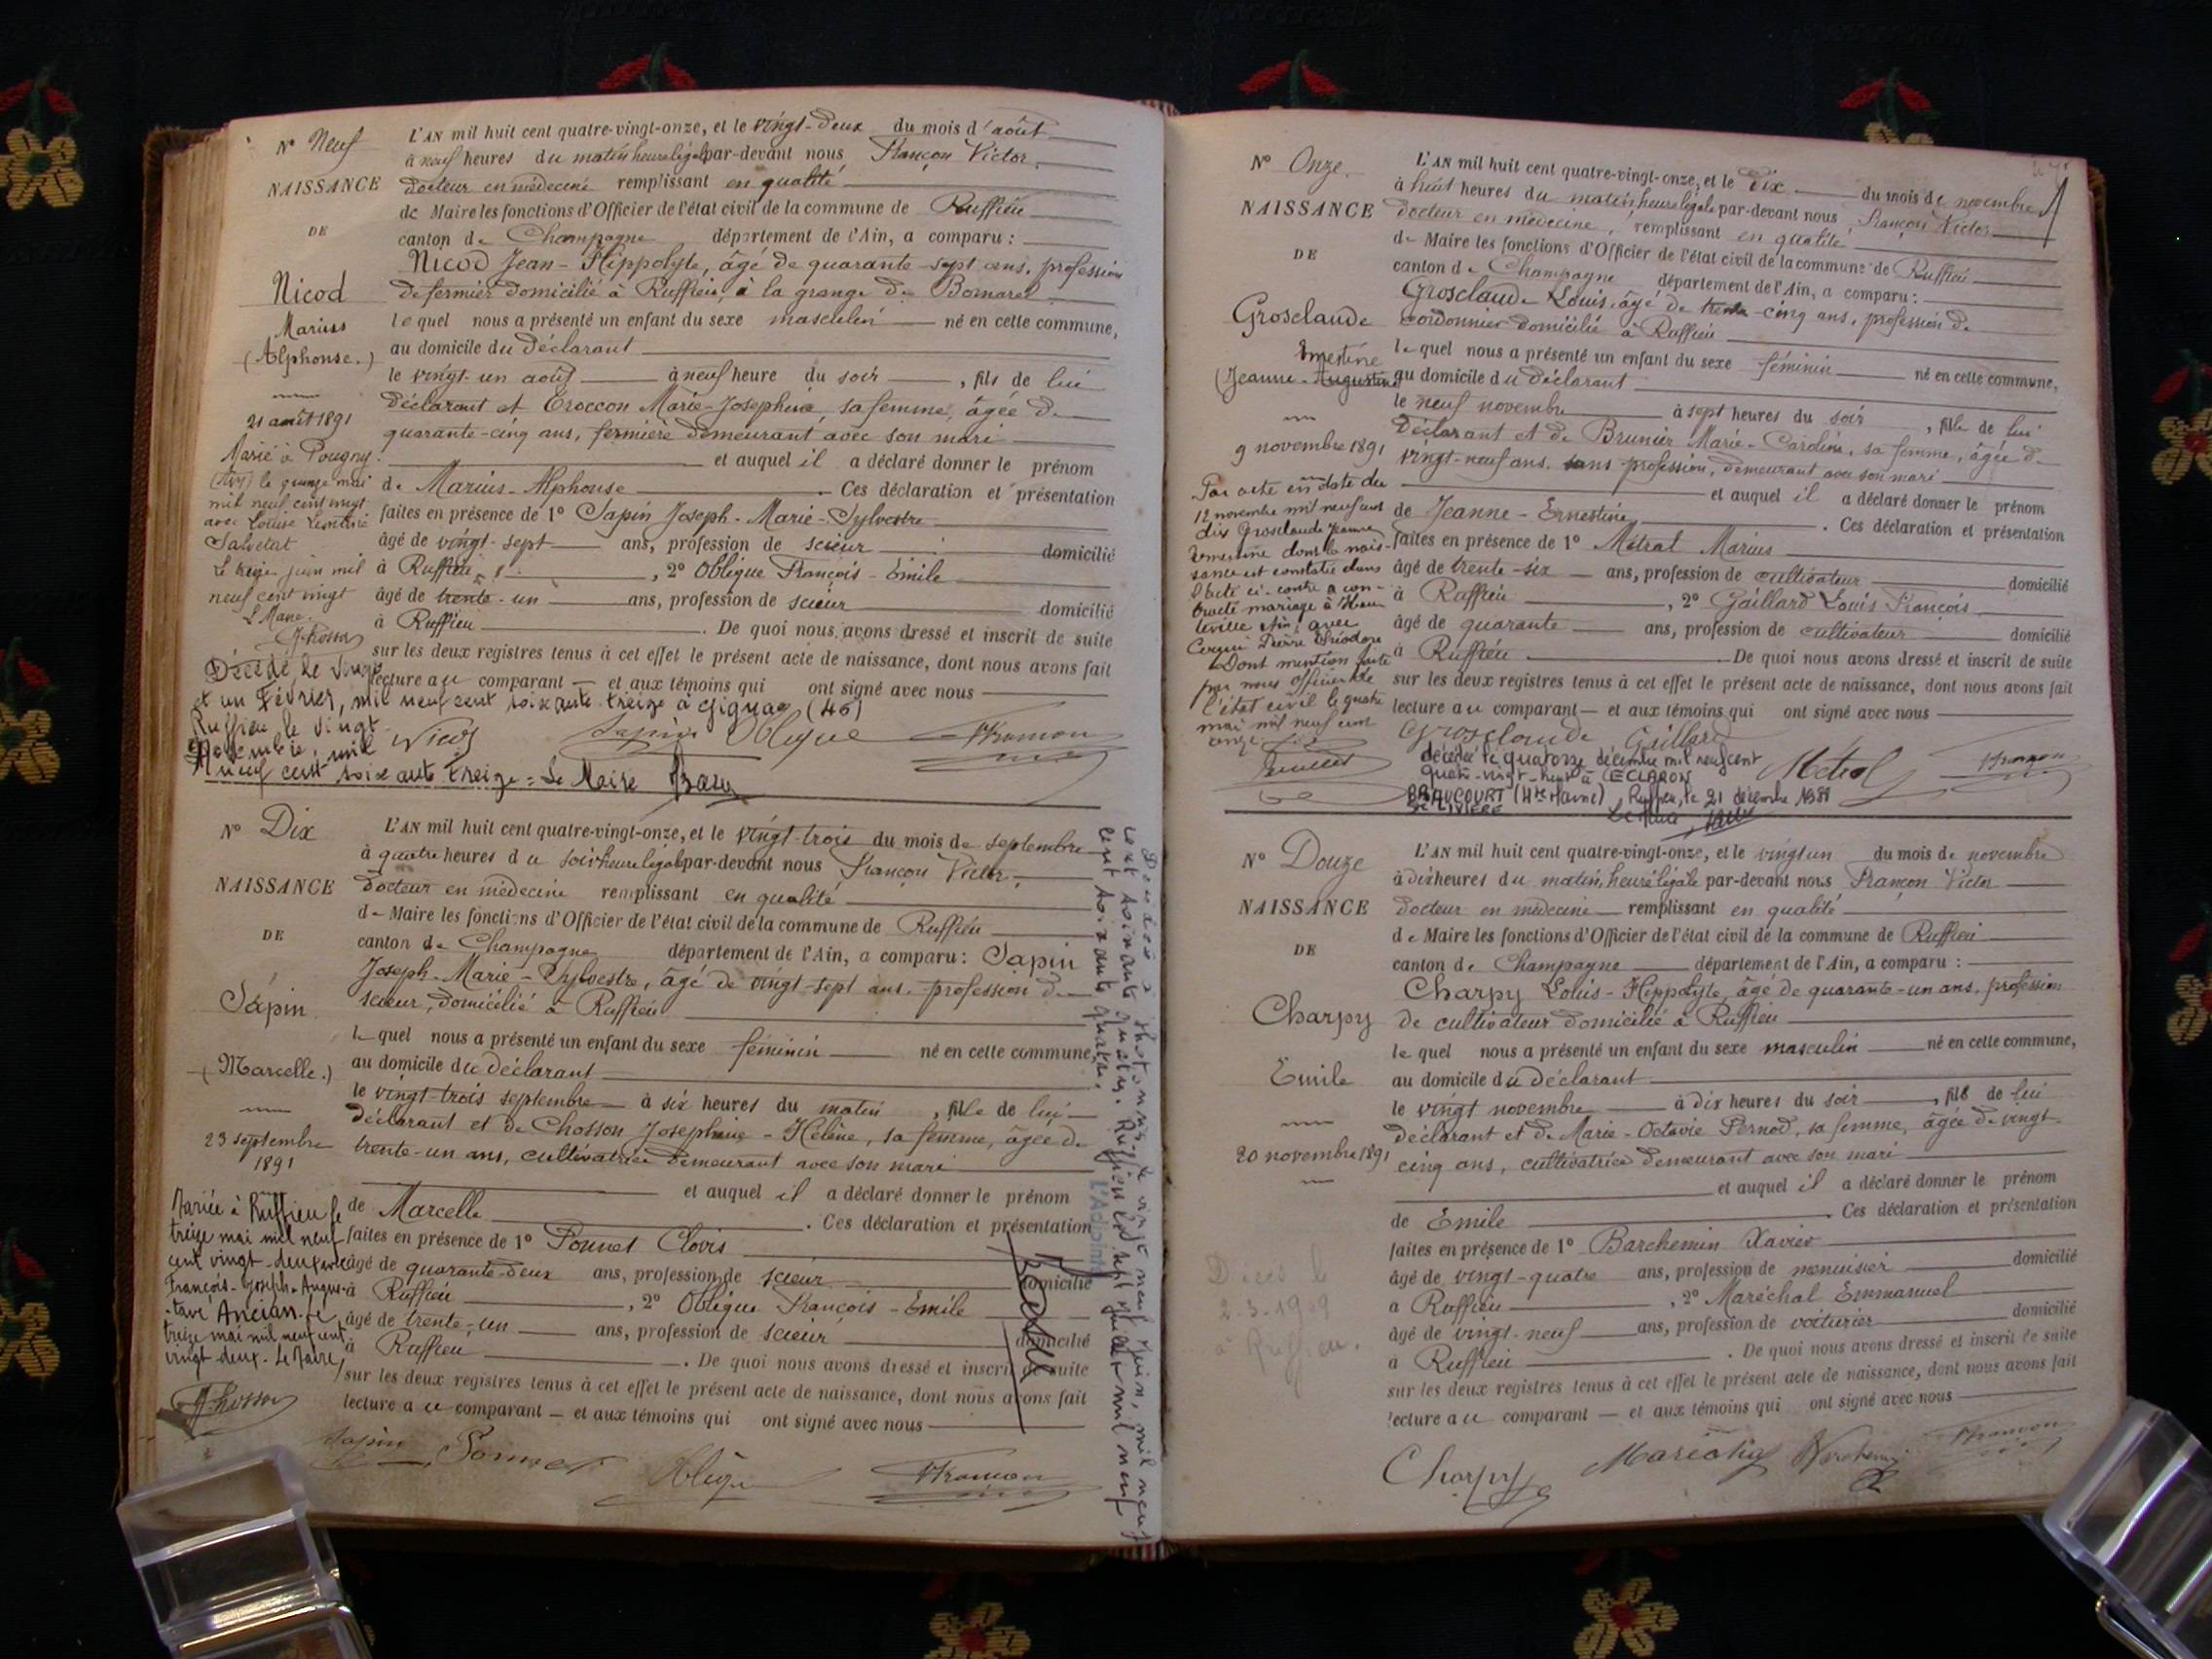 N° Neuf
NAISSANCE
DE
Nicod
Marius
(Alphonse.)
21 août 1891
Marié à Pougny
(Ain) le quinze mai
mil neuf cent vingt
avec Louise
Salvetat
Le treize juin mil
neuf cent vingt
L'AN mil huit cent quatre-vingt-onze, et le vingt-deux du mois d'août
à neuf heures du matin heure légale par-devant nous Françon Victor,
docteur en médecine remplissant en qualité
de Maire les fonctions d'Officier de l'état civil de la commune de Ruffieu
canton de Champagne département de l'Ain, a comparu :
Nicod Jean-Hippolyte, âgé de quarante-sept ans, profession
de fermier domicilié à Ruffieu, à la grange de
le quel nous a présenté un enfant du sexe masculin né en cette commune,
au domicile du déclarant
le vingt-un août à neuf heure du soir, fils de lui
déclarant et Croccon Marie-Josephine, sa femme, âgée de
quarante-cinq ans, fermière demeurant avec son mari
et auquel il a déclaré donner le prénom
de Marius-Alphonse. Ces déclaration et présentation
faites en présence de 1° Sapin Joseph-Marie-Sylvestre
âgé de vingt-sept ans, profession de scieur domicilié
à Ruffieu, 2° Oblique François-Emile
âgé de trente-un ans, profession de scieur domicilié
à Ruffieu. De quoi nous avons dressé et inscrit de suite
sur les deux registres tenus à cet effet le présent acte de naissance, dont nous avons fait
lecture au comparant — et aux témoins qui ont signé avec nous
Décédé le vingt
et un Février, mil neuf cent soixante treize à Gignac (46)
Ruffieu le vingt
Novembre, mil
neuf cent soixante treize = Le Maire
Nicod Sapin Oblique Françon
N° Dix
NAISSANCE
DE
Sapin
(Marcelle.)
23 septembre
1891
Mariée à Ruffieu le
treize mai mil neuf
cent vingt-deux avec
François-Joseph-Augus-
tave Ancian. Le
treize mai mil neuf cent
vingt deux. Le Maire,
L'AN mil huit cent quatre-vingt-onze, et le vingt-trois du mois de septembre
à quatre heures du soir heure légale par-devant nous Françon Victor,
docteur en médecine remplissant en qualité
de Maire les fonctions d'Officier de l'état civil de la commune de Ruffieu
canton de Champagne département de l'Ain, a comparu : Sapin
Joseph-Marie-Sylvestre, âgé de vingt-sept ans, profession de
scieur, domicilié à Ruffieu
le quel nous a présenté un enfant du sexe féminin né en cette commune,
au domicile du déclarant
le vingt-trois septembre à six heures du matin, fille de lui
déclarant et de Chosson Josephine-Hélène, sa femme, âgée de
trente-un ans, cultivatrice demeurant avec son mari
et auquel il a déclaré donner le prénom
de Marcelle. Ces déclaration et présentation
faites en présence de 1° Ponnet Clovis
âgé de quarante-deux ans, profession de scieur domicilié
à Ruffieu, 2° Oblique François-Emile
âgé de trente-un ans, profession de scieur domicilié
à Ruffieu. De quoi nous avons dressé et inscrit de suite
sur les deux registres tenus à cet effet le présent acte de naissance, dont nous avons fait
lecture au comparant — et aux témoins qui ont signé avec nous
Sapin Ponnet Oblique Françon
Décédée à le vingt neuf juin, mil neuf
cent soixante quatre. Ruffieu le sept juillet mil neuf
cent soixante quatre.
L'Adjoint
N° Onze
NAISSANCE
DE
Grosclaude
Ernestine
(Jeanne-Augustine
9 novembre 1891
Par acte en date du
12 novembre mil neuf cent
dix Grosclaude Jeanne
Ernestine dont la nais-
sance est constatée dans
l'acte ci-contre a con-
tracté mariage à Haute-
ville Ain, avec
Pierre Théodore
Dont mention faite
par nous officier de
l'état civil le quatre
mai mil neuf cent
onze
L'AN mil huit cent quatre-vingt-onze, et le dix du mois de novembre
à huit heures du matin heure légale par-devant nous Françon Victor
docteur en médecine, remplissant en qualité
de Maire les fonctions d'Officier de l'état civil de la commune de Ruffieu
canton de Champagne département de l'Ain, a comparu :
Grosclaude Louis, âgé de trente-cinq ans, profession de
cordonnier domicilié à Ruffieu
le quel nous a présenté un enfant du sexe féminin né en cette commune,
au domicile du déclarant
le neuf novembre à sept heures du soir, fille de lui
déclarant et de Brunier Marie-Caroline, sa femme, âgée de
vingt-neuf ans, sans profession, demeurant avec son mari
et auquel il a déclaré donner le prénom
de Jeanne-Ernestine. Ces déclaration et présentation
faites en présence de 1° Métral Marius
âgé de trente-six ans, profession de cultivateur domicilié
à Ruffieu, 2° Gaillard Louis François
âgé de quarante ans, profession de cultivateur domicilié
à Ruffieu. De quoi nous avons dressé et inscrit de suite
sur les deux registres tenus à cet effet le présent acte de naissance, dont nous avons fait
lecture au comparant — et aux témoins qui ont signé avec nous
Grosclaude Gaillard Métral Françon
décédée le quatorze décembre mil neuf cent
quatre-vingt-neuf à ECLARON
BRAUCOURT (Hte Marne) Ruffieu, le 21 décembre 1989
Ste LIVIERE Le Maire
N° Douze
NAISSANCE
DE
Charpy
Emile
20 novembre 1891
Décès le
2-3-1909
à Ruffieu.
L'AN mil huit cent quatre-vingt-onze, et le vingt un du mois de novembre
à dix heures du matin, heure légale par-devant nous Françon Victor
docteur en médecine remplissant en qualité
de Maire les fonctions d'Officier de l'état civil de la commune de Ruffieu
canton de Champagne département de l'Ain, a comparu :
Charpy Louis-Hippolyte, âgé de quarante-un ans, profession
de cultivateur domicilié à Ruffieu
le quel nous a présenté un enfant du sexe masculin né en cette commune,
au domicile du déclarant
le vingt novembre à dix heures du soir, fils de lui
déclarant et de Marie-Octavie Pernod, sa femme, âgée de vingt-
cinq ans, cultivatrice demeurant avec son mari
et auquel il a déclaré donner le prénom
de Emile. Ces déclaration et présentation
faites en présence de 1° Barchemin Xavier
âgé de vingt-quatre ans, profession de menuisier domicilié
à Ruffieu, 2° Maréchal Emmanuel
âgé de vingt-neuf ans, profession de voiturier domicilié
à Ruffieu. De quoi nous avons dressé et inscrit de suite
sur les deux registres tenus à cet effet le présent acte de naissance, dont nous avons fait
lecture au comparant — et aux témoins qui ont signé avec nous
Charpy Françon